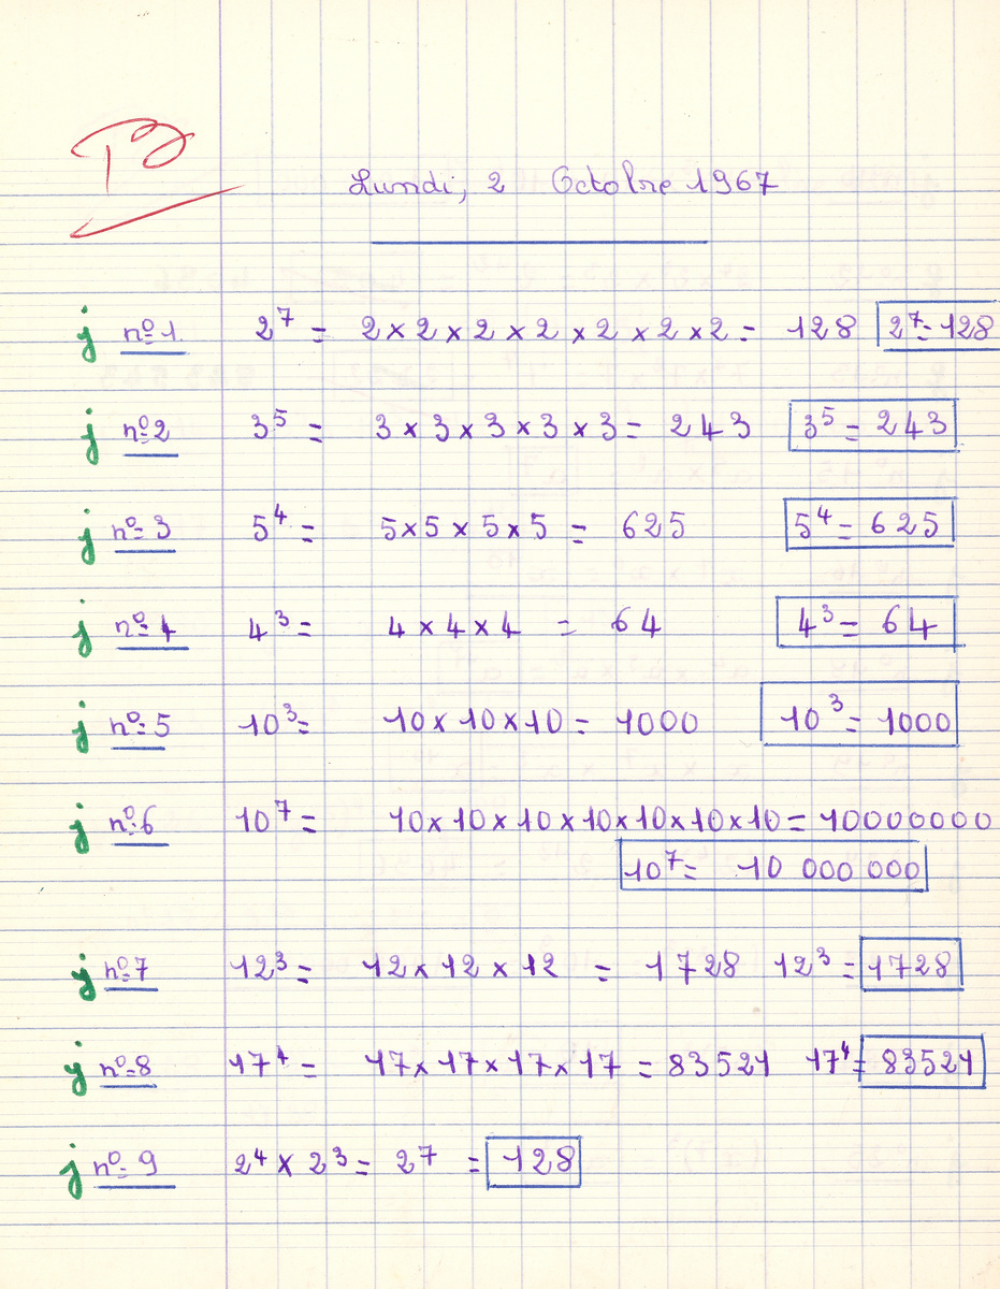 TB
Lundi, 2 Octobre 1967
j nº1. 2⁷ = 2 × 2 × 2 × 2 × 2 × 2 × 2 = 128 2⁷ = 128
j nº2 3⁵ = 3 × 3 × 3 × 3 × 3 = 243 3⁵ = 243
j nº3 5⁴ = 5 × 5 × 5 × 5 = 625 5⁴ = 625
j nº4 4³ = 4 × 4 × 4 = 64 4³ = 64
j nº5 10³ = 10 × 10 × 10 = 1000 10³ = 1000
j nº6 10⁷ = 10 × 10 × 10 × 10 × 10 × 10 × 10 = 10000000
10⁷ = 10 000 000
j nº7 12³ = 12 × 12 × 12 = 1728 12³ = 1728
j nº8 17⁴ = 17 × 17 × 17 × 17 = 83521 17⁴ = 83521
j nº9 2⁴ × 2³ = 2⁷ = 128